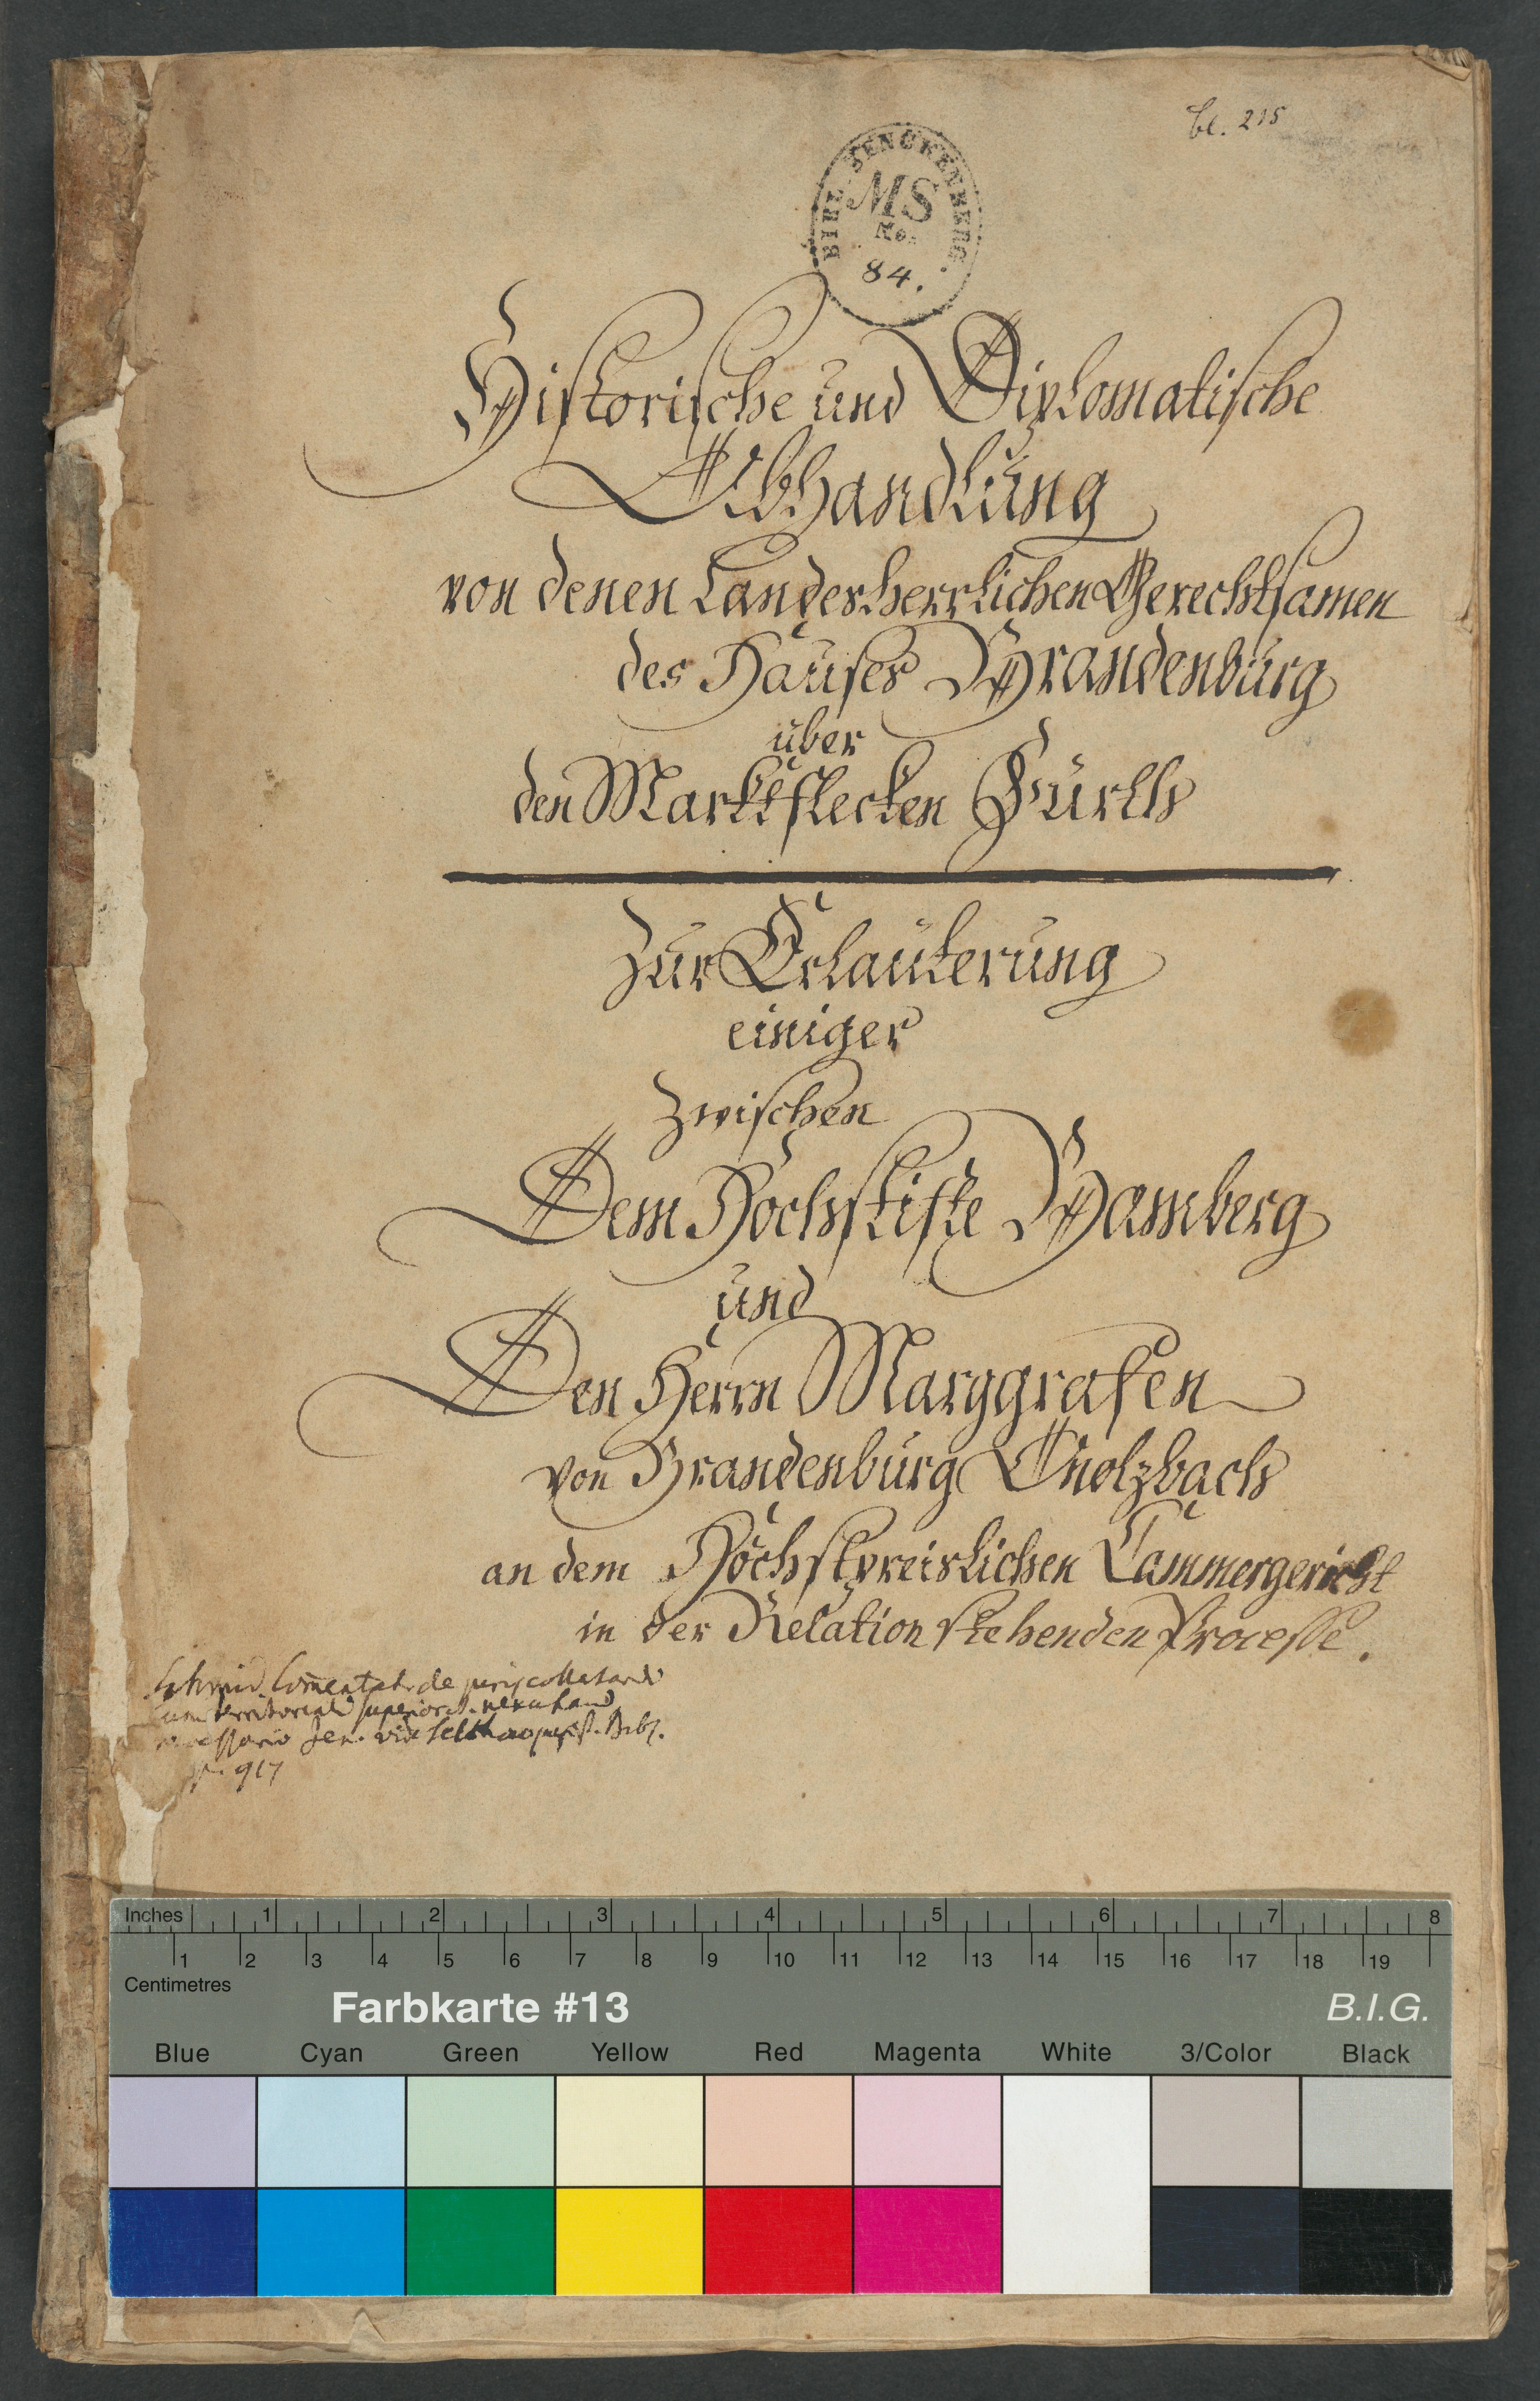 bl. 215
BIBL. SENCKENBERG.
MS
No.
84.
Historische und Diplomatische
Abhandlung
von denen Landesherrlichen Gerechtsamen
des Hauses Brandenburg
über
den Marktflecken Fürth
Zur Erläuterung
einiger
Zwischen
Dem Hochstifte Bamberg
und
Den Herrn Marggrafen
von Brandenburg Onolzbach
an dem Höchstpreislichen Cammergericht
in der Relation stehenden Processe.
Schmid. Com̄entat. de juris collectandi
cum territoriali superiorit. nexu haud
necessario Jen. vid. Bibl.
p. 917
Inches 1 2 3 4 5 6 7 8
1 2 3 4 5 6 7 8 9 10 11 12 13 14 15 16 17 18 19
Centimetres
Farbkarte #13 B.I.G.
Blue Cyan Green Yellow Red Magenta White 3/Color Black